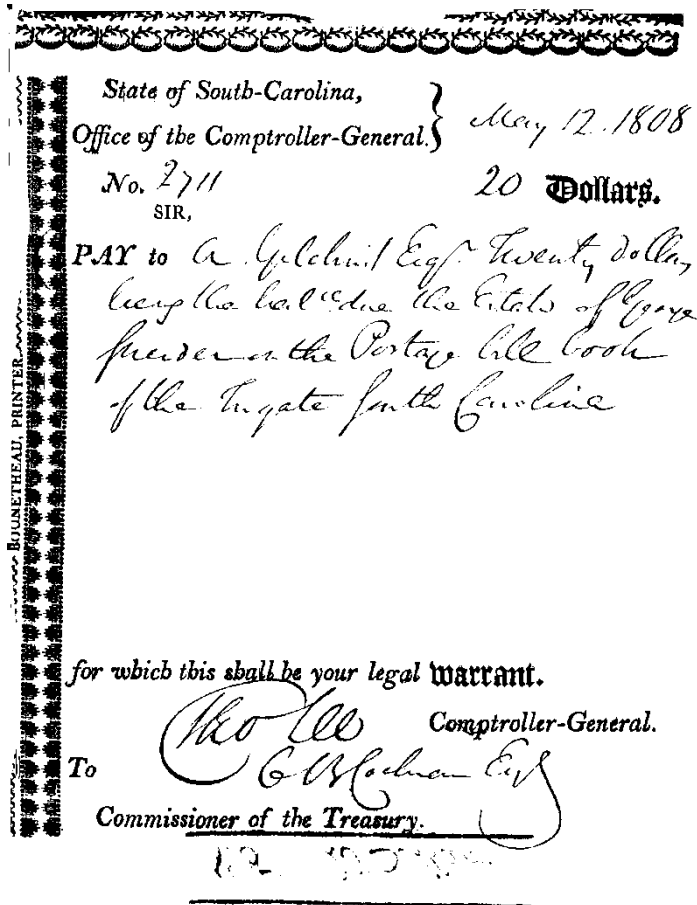 State of South-Carolina,
Office of the Comptroller-General.
May 12. 1808
No. 2711
20 Dollars.
SIR,
PAY to A. Gilchrist Esqr. Twenty dollars
being the balce due the Estate of George
on the Postage bill book
of the Frigate South Carolina
for which this shall be your legal warrant.
Tho Lee
Comptroller-General.
To C B Cochran Esqr
Commissioner of the Treasury.
BOUNETHEAU, PRINTER